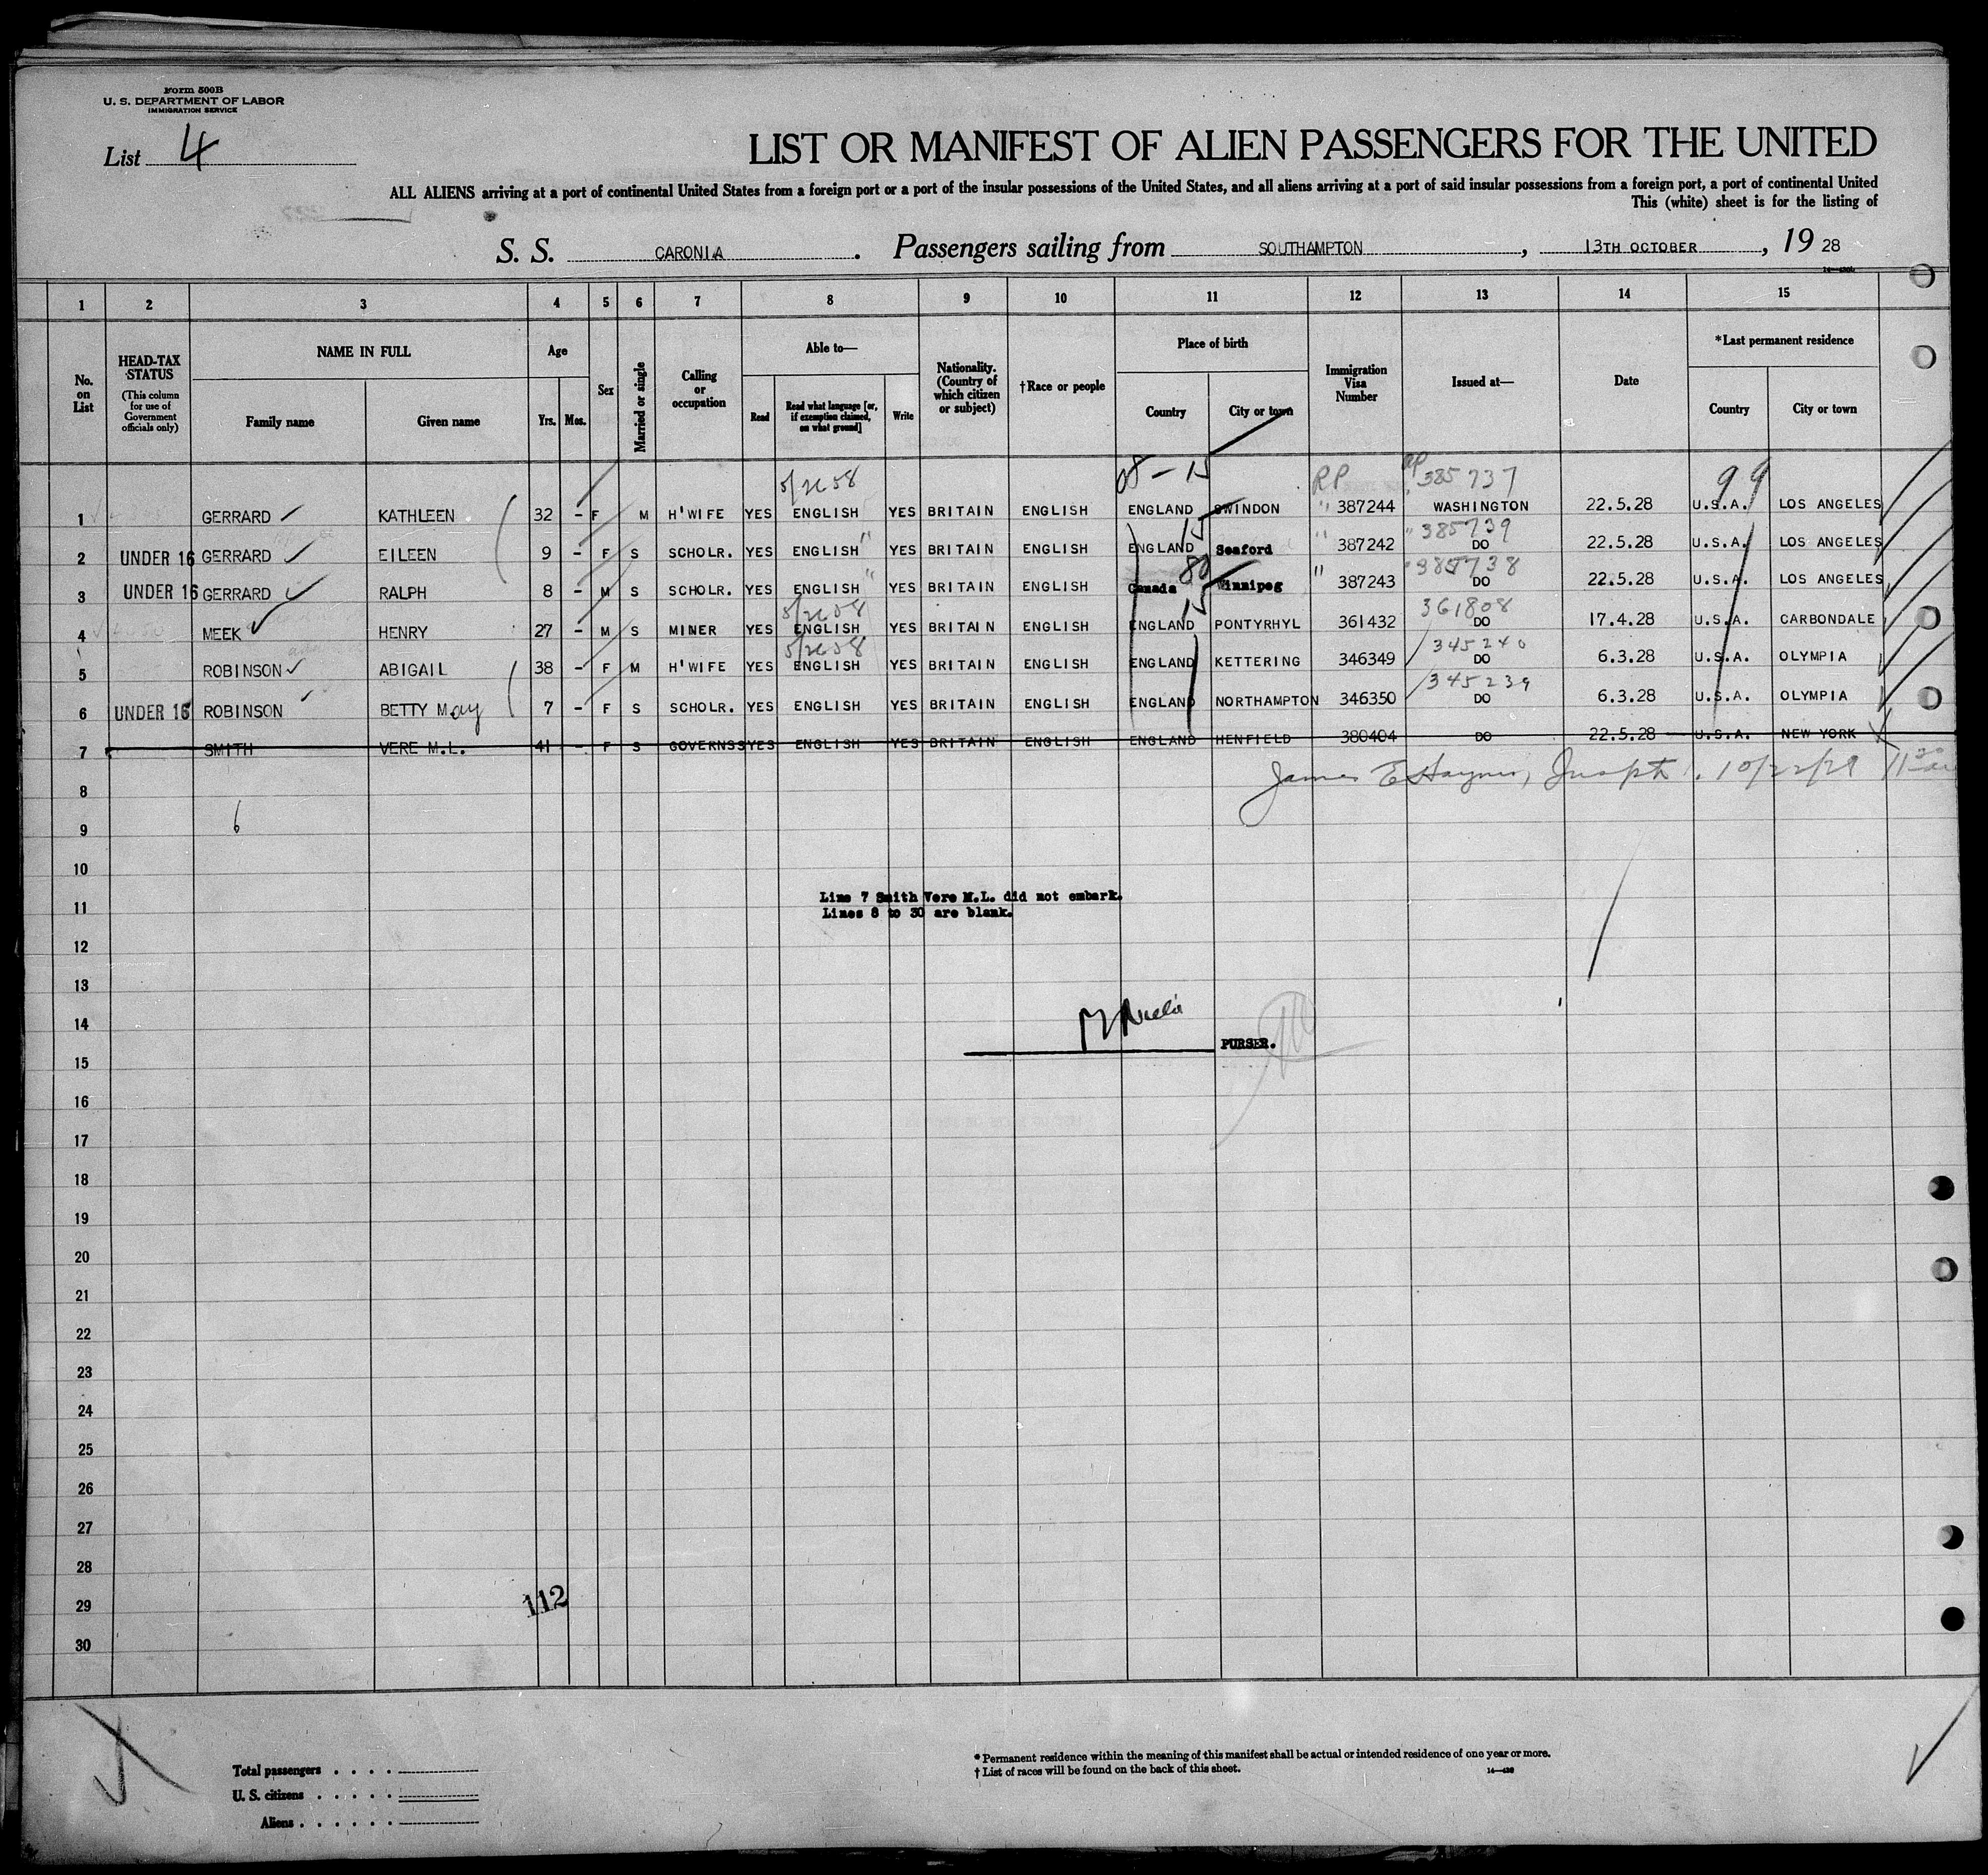 Form 500B
U. S. DEPARTMENT OF LABOR
IMMIGRATION SERVICE
List 4
LIST OR MANIFEST OF ALIEN PASSENGERS FOR THE UNITED
ALL ALIENS arriving at a port of continental United States from a foreign port or a port of the insular possessions of the United States, and all aliens arriving at a port of said insular possessions from a foreign port, a port of continental United
This (white) sheet is for the listing of
S. S. CARONIA. Passengers sailing from SOUTHAMPTON, 13TH OCTOBER, 19 28
1 2 3 4 5 6 7 8 9 10 11 12 13 14 15
No. on List
HEAD-TAX STATUS (This column for use of Government officials only)
NAME IN FULL Family name Given name
Age Yrs. Mos.
Sex
Married or single
Calling or occupation
Able to— Read Read what language [or, if exemption claimed, on what ground] Write
Nationality. (Country of which citizen or subject)
†Race or people
Place of birth Country City or town
Immigration Visa Number
Issued at—
Date
*Last permanent residence Country City or town
5/2658 08-15 RP 385737 99
1 GERRARD KATHLEEN 32 - F M H'WIFE YES ENGLISH YES BRITAIN ENGLISH ENGLAND SWINDON " 387244 WASHINGTON 22.5.28 U.S.A. LOS ANGELES
15 385739
2 UNDER 16 GERRARD EILEEN 9 - F S SCHOLR. YES ENGLISH " YES BRITAIN ENGLISH ENGLAND Seaford " 387242 DO 22.5.28 U.S.A. LOS ANGELES
80 385738
3 UNDER 16 GERRARD RALPH 8 - M S SCHOLR. YES ENGLISH " YES BRITAIN ENGLISH Canada Winnipeg " 387243 DO 22.5.28 U.S.A. LOS ANGELES
5/2658 15 361808
4 MEEK HENRY 27 - M S MINER YES ENGLISH YES BRITAIN ENGLISH ENGLAND PONTYRHYL 361432 DO 17.4.28 U.S.A. CARBONDALE
5/2658 345240
5 ROBINSON ABIGAIL 38 - F M H'WIFE YES ENGLISH YES BRITAIN ENGLISH ENGLAND KETTERING 346349 DO 6.3.28 U.S.A. OLYMPIA
345239
6 UNDER 16 ROBINSON BETTY May 7 - F S SCHOLR. YES ENGLISH YES BRITAIN ENGLISH ENGLAND NORTHAMPTON 346350 DO 6.3.28 U.S.A. OLYMPIA
7 SMITH VERE M.L. 41 - F S GOVERNSS YES ENGLISH YES BRITAIN ENGLISH ENGLAND HENFIELD 380404 DO 22.5.28 U.S.A. NEW YORK
James E 10/22/28
8
9 6
10
Line 7 Smith Vere M.L. did not embark.
11
Lines 8 to 30 are blank.
12
13
14
PURSER.
15
16
17
18
19
20
21
22
23
24
25
26
27
28
29 112
30
* Permanent residence within the meaning of this manifest shall be actual or intended residence of one year or more.
† List of races will be found on the back of this sheet.
Total passengers
U. S. citizens
Aliens